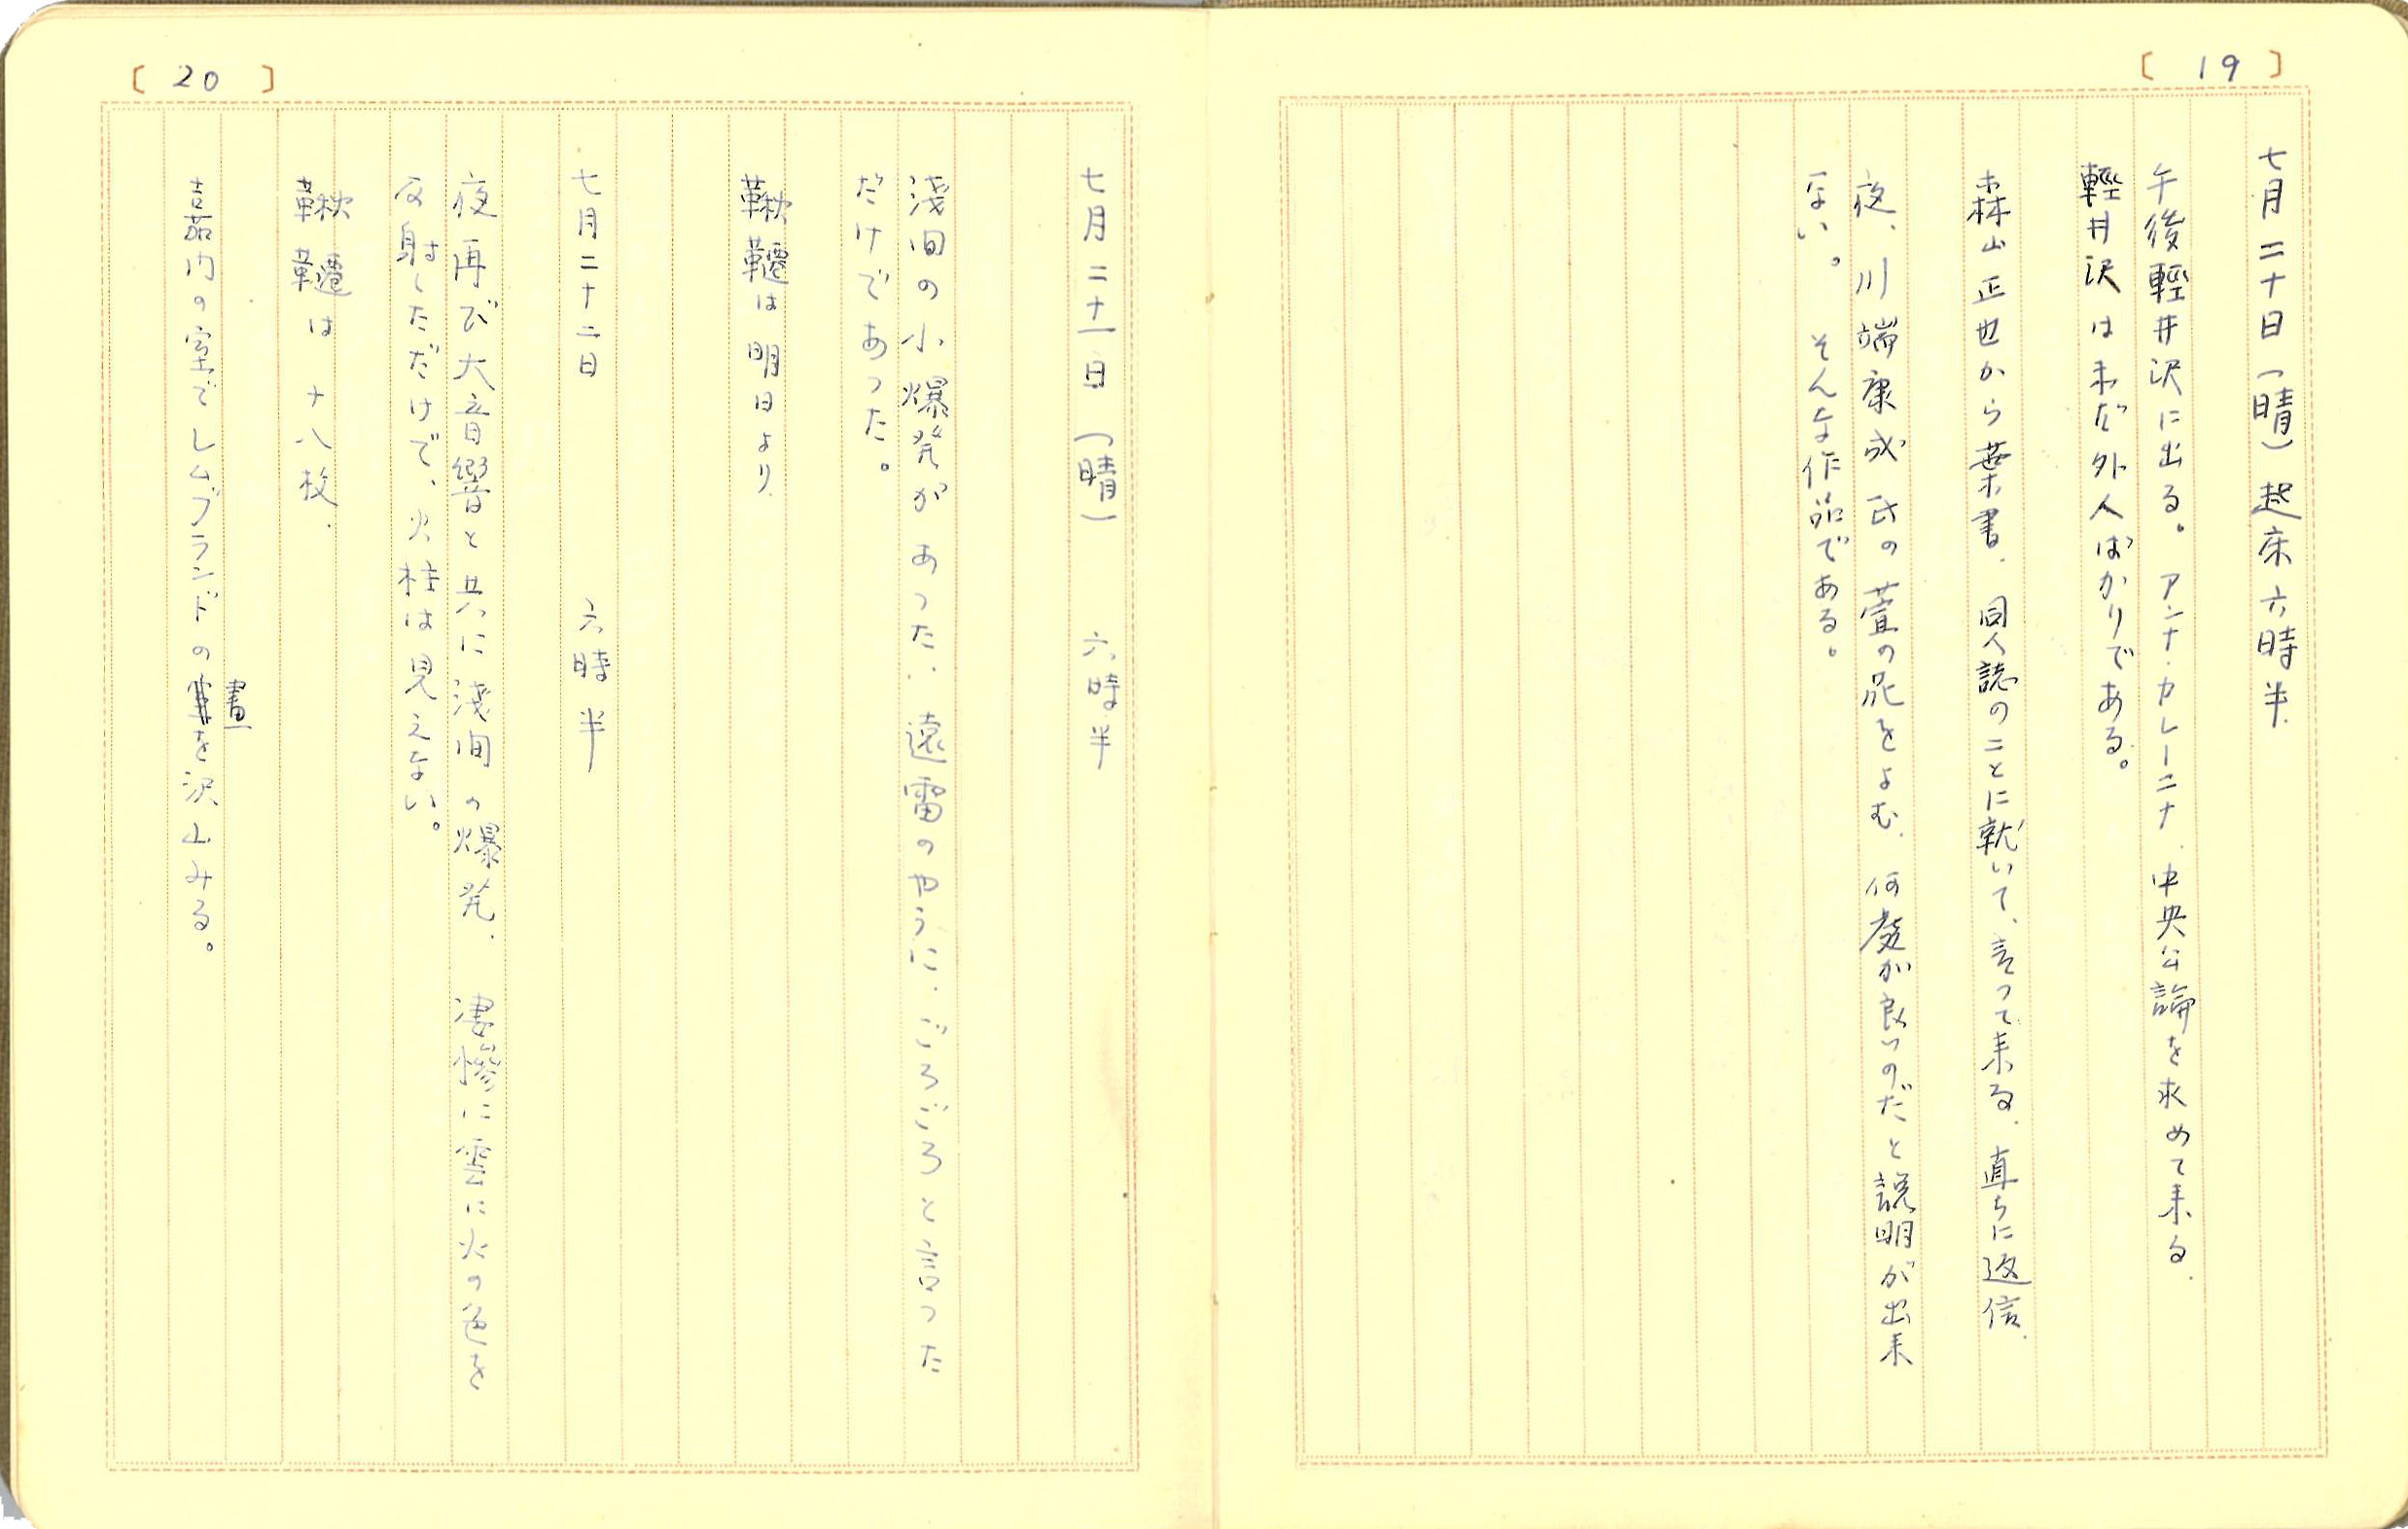 [ 19 ]
七月二十日(晴)起床六時半.
午後輕井沢に出る。アンナ・カレーニナ、中央公論を求めて来る.
輕井沢は未だ外人ばかりである。
森山正也から葉書. 同人誌のことに就いて、言つて来る. 直ちに返信.
夜、川端康成氏の萱の花をよむ. 何處が良いのだと説明が出来
ない。 そんな作品である。
[ 20 ]
七月二十一日(晴) 六時半
浅間の小爆発があつた. 遠雷のやうに、ごろごろと言つた
だけであつた。
鞦韆は明日より.
七月二十二日 六時半
夜再び大音響と共に浅間の爆発. 凄惨に雲に火の色を
反射しただけで、火柱は見えない。
鞦韆は十八枚.
畫
嘉茹内の室でレムブランドのを沢山みる。